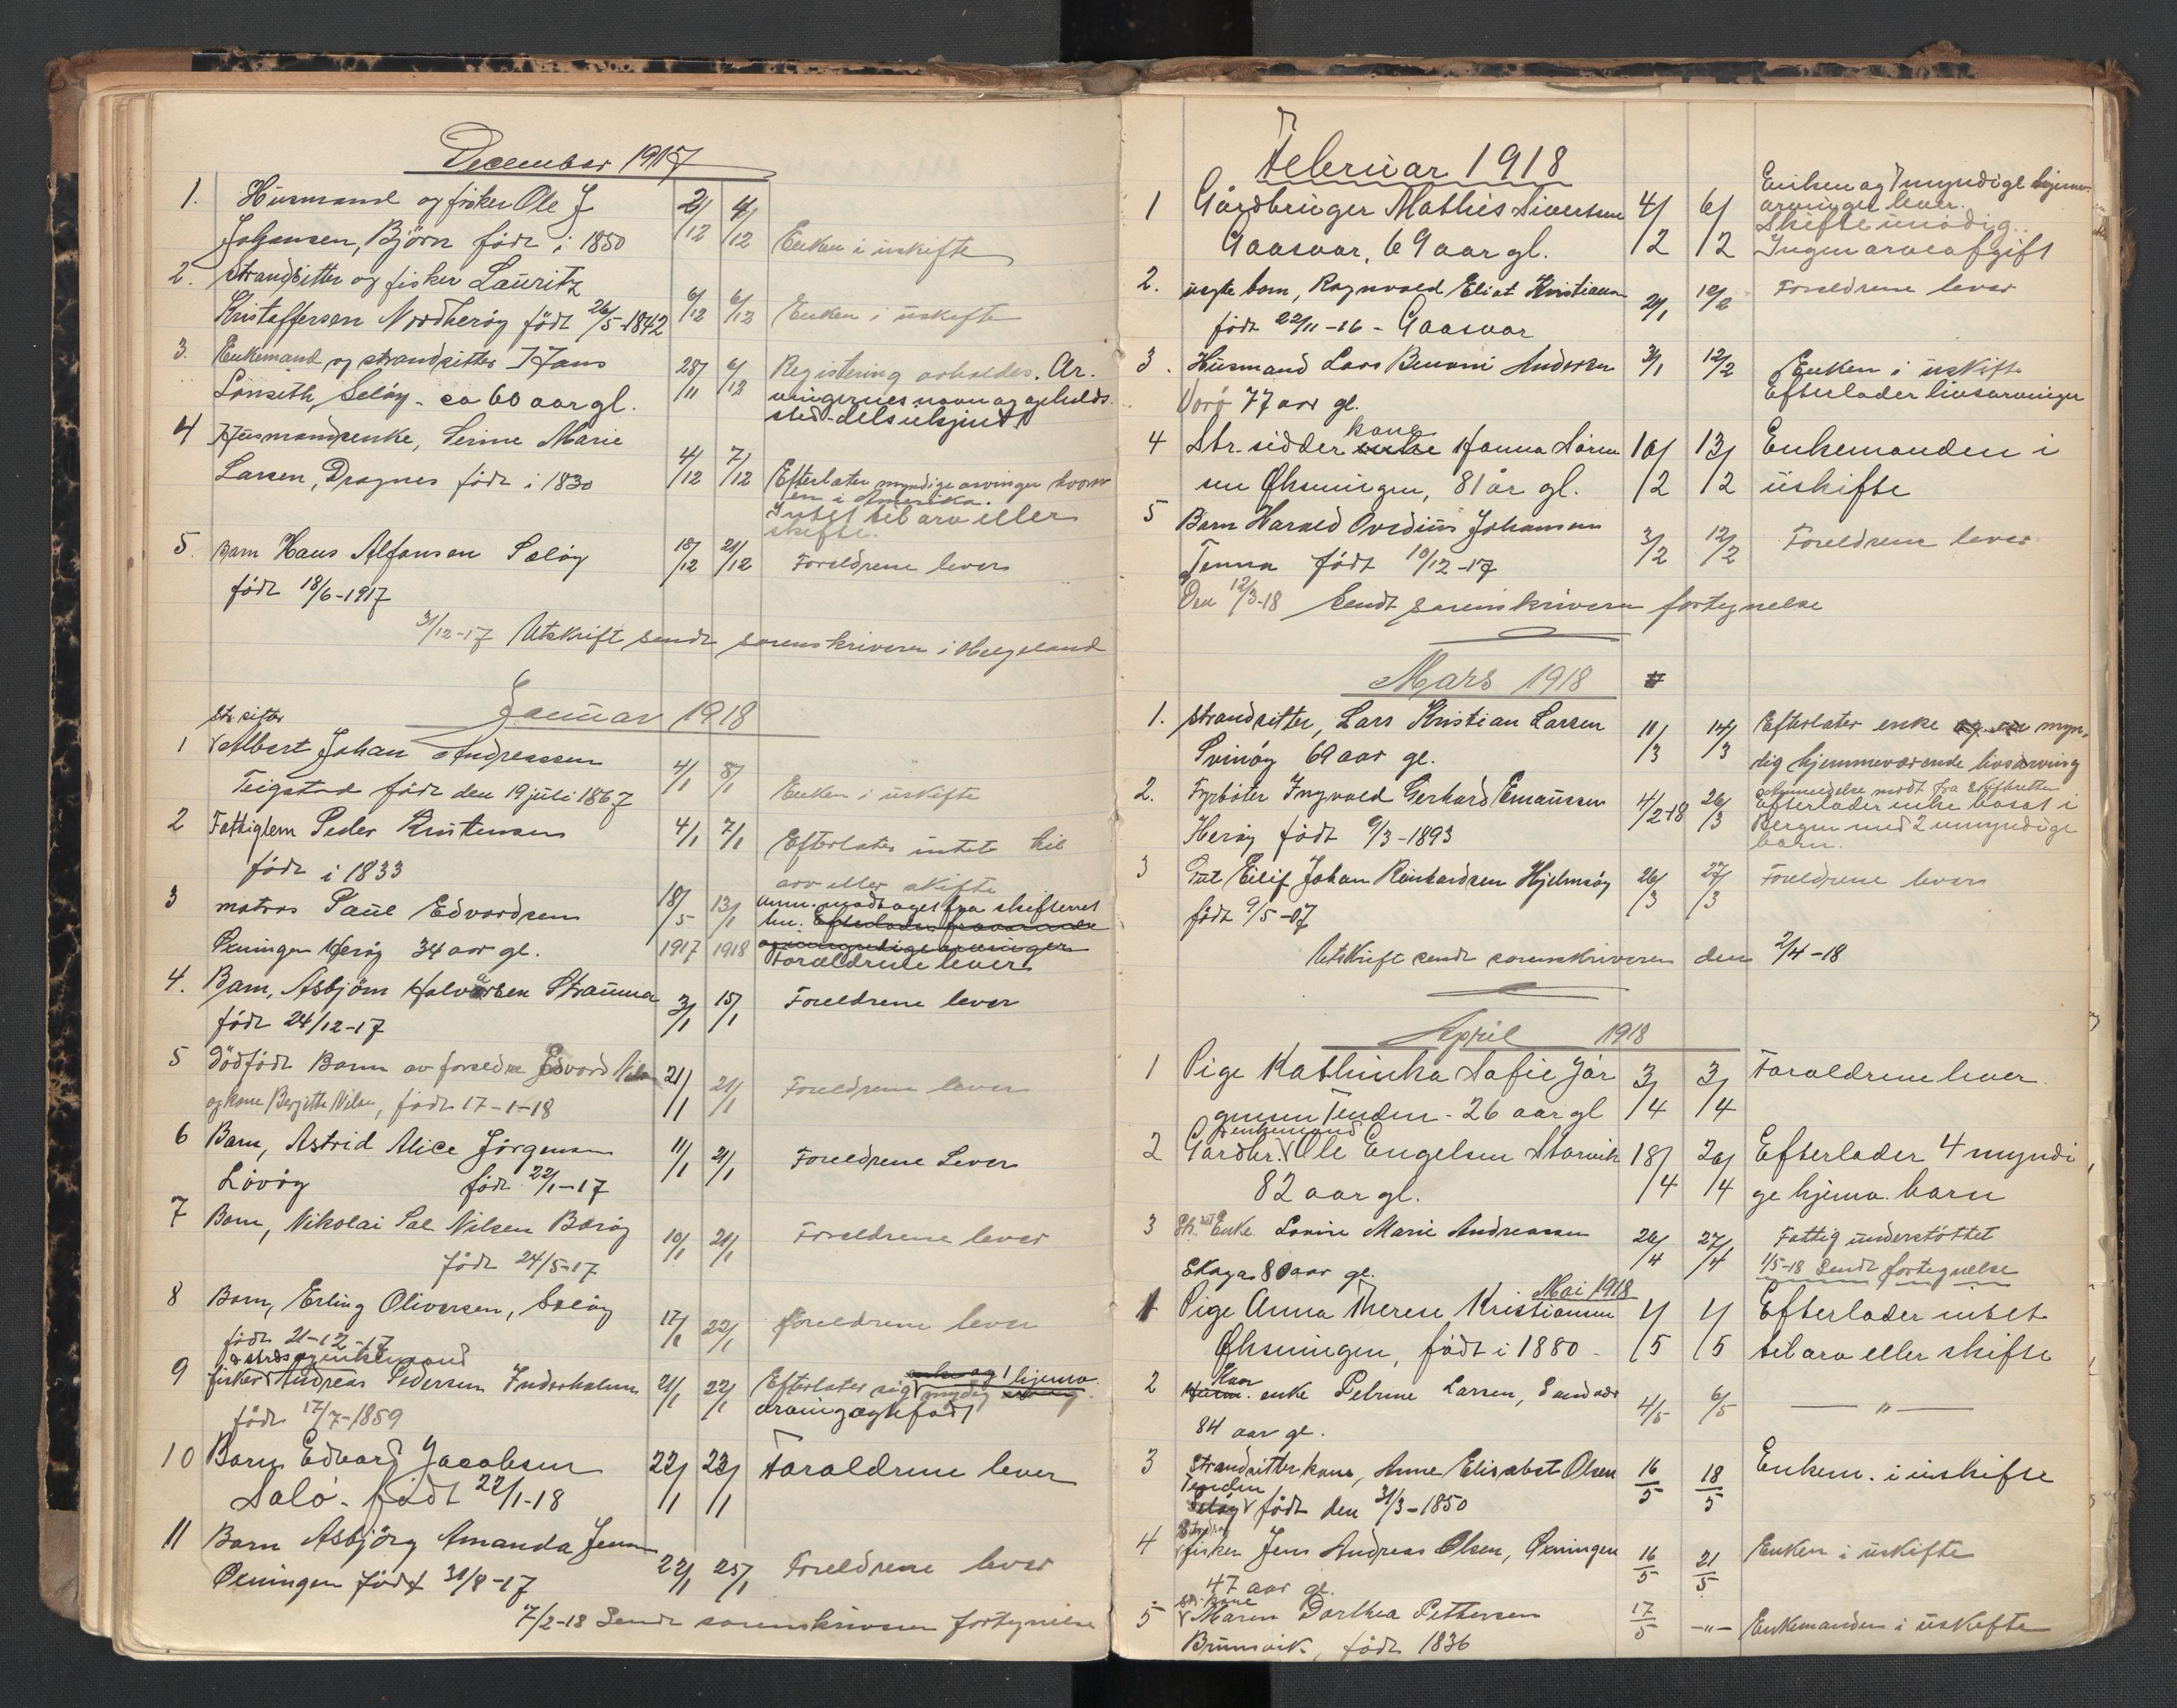 December 1917
1. Husmand og fisker Ole J 2/12 4/12
Johansen, Björn födt i 1850 Enken i uskifte
2. Strandsitter og fisker Lauritz
Kristoffersen Nordherøy födt 26/5-1842 6/12 6/12 Enken i uskifte
3. Enkemand og strandsitter Hans 28/11 6/12 Registering avholdes. Ar-
Lönseth, Seløy - ca 60 aar gl. vingernes navn og opholds-
sted - dels ukjent
4 Husmandsenke, Serine Marie
Larsen, Dragnes födt i 1830 4/12 7/12 Efterlater myndige arvinger hvorav
en i Amerika.
Intet til arv eller
skifte.
5. Barn Hans Alfonsen Seløy 18/12 21/12 Foreldrene lever
födt 18/6-1917
31/12-17 Utskrift sendt sorenskriveren i Helgeland
Januar 1918
Str. sitter
1 Albert Johan Andreassen
Teigstad födt den 19 juli 1867 4/1 8/1 Enken i uskifte
2 Fattiglem Peder Kristensen 4/1 7/1 Efterlater intet til
födt i 1833 arv eller skifte
3 matros Paul Edvardsen 18/5 13/1 Anm. modtaget fra skifteret
ten. Efterlader
Øxningen Herøy 34 aar gl. 1917 1918 Foraldrene lever
4. Barn, Asbjørn Halvorsen Strauma 3/1 15/1 Foreldrene lever
födt 24/12-17
5 Dödfödt Barn av foreldre Edvard Nilsen 21/1 21/1 Foreldrene lever
og kone Bergitte Nilsen, födt 17-1-18
6 Barn, Astrid Alice Jörgensen 11/1 21/1 Foreldrene Lever
Lövöy födt 22/1-17
7 Barn, Nikolai Sol Nilsen Boröy 10/1 21/1 Foreldrene lever
födt 24/5-17
8 Barn, Erling Oliversen, Seløy 17/1 22/1 foreldrene lever
födt 21-12-17
og enkemand
9 fisker Andreas Pedersen Inderholmen 21/1 22/1 Efterlater sig enke og 1 hjemv. myndig arving
födt 17/7-1859 arving ogtefødt
10 Barn Edvard Jacobsen 22/1 23/1 Foraldrene lever
Salö - födt 22/1-18
11 Barn Asbjörg Amanda Jensen 22/1 25/1 Foreldrene lever
Øxningen födt 31/8-17
7/2-18 Sendt sorenskriveren fortegnelse
Februar 1918
1 Gårdbruger Mathis Sivertsen 4/2 6/2 Enken og 7 myndige hjemv.
arvinger lever.
Skifte unödig.
Gaasvar, 69 aar gl. Ingen arveafgift
2. uegte barn, Ragnvald Eliot Kristiansen 21/1 12/2 Foreldrene lever
födt 22/11-16 - Gaasvar
3. Husmand Lars Benoni Andersen 3/1 12/2 Enken i uskifte
Vorö 77 aar gl. Efterlader livsarvinger
4 Str. sidder enke kone Hanna Sören 10/2 13/2 Enkemanden i
sen Øksningen, 81 år gl. uskifte
5 Barn Harald Ovedius Johansen 3/2 12/2 Foreldrene lever
Tenna födt 10/12-17
Den 12/3-18 Sendt sorenskriveren fortegnelse
Mars 1918
1. Strandsitter, Lars Kristian Larsen 11/3 14/3 Efterlater enke og en myn-
Svinöy 69 aar gl. dig hjemmeværende livsarving
2. Fyrböter Ingvald Gerhard Emaussen 4/2-18 26/3 Anmeldelse modt fra skifteretten
Heröy födt 9/3-1893 Efterlader enke bosat i
Bergen med 2 umyndige
barn.
3 Gut Eilif Johan Reinhardsen Hjelmsöy 26/3 27/3 Foreldrene lever
födt 9/5-07
Utskrift sendt sorenskriveren den 2/4-18
April 1918
1 Pige Kathinka Sofie Jör 3/4 3/4 Foraldrene lever
gensen Tenden - 26 aar gl
enkemand
2 Gårdbr. Ole Engelsen Storvik 18/4 20/4 Efterlader 4 myndi
82 aar gl. ge hjemv. barn
3 Str. sitt. Enke Lovise Marie Andreassen 26/4 27/4 Fattig understöttet
Skaga 80 aar gl. 1/5-18 Sendt fortegnelse
Mai 1918
1 Pige Anna Therese Kristiansen 4/5 4/5 Efterlader intet
Øksningen, födt i 1880 - til arv eller skifte
2 Kaar enke Petrine Larsen, Sandvær 4/5 6/5 — " —
84 aar gl.
3 Strandsitterkone, Anne Elisabet Olsen 16/5 18/5 Enkem. i uskifte
Tenden
Seløy födt den 31/3-1850
4 fisker Jens Andreas Olsen, Øxningen 16/5 21/5 Enken i uskifte
47 aar gl.
str. kone
5 Maren Dorthea Pettersen 17/5 -"- Enkemanden i uskifte
Brunsvik, födt 1836